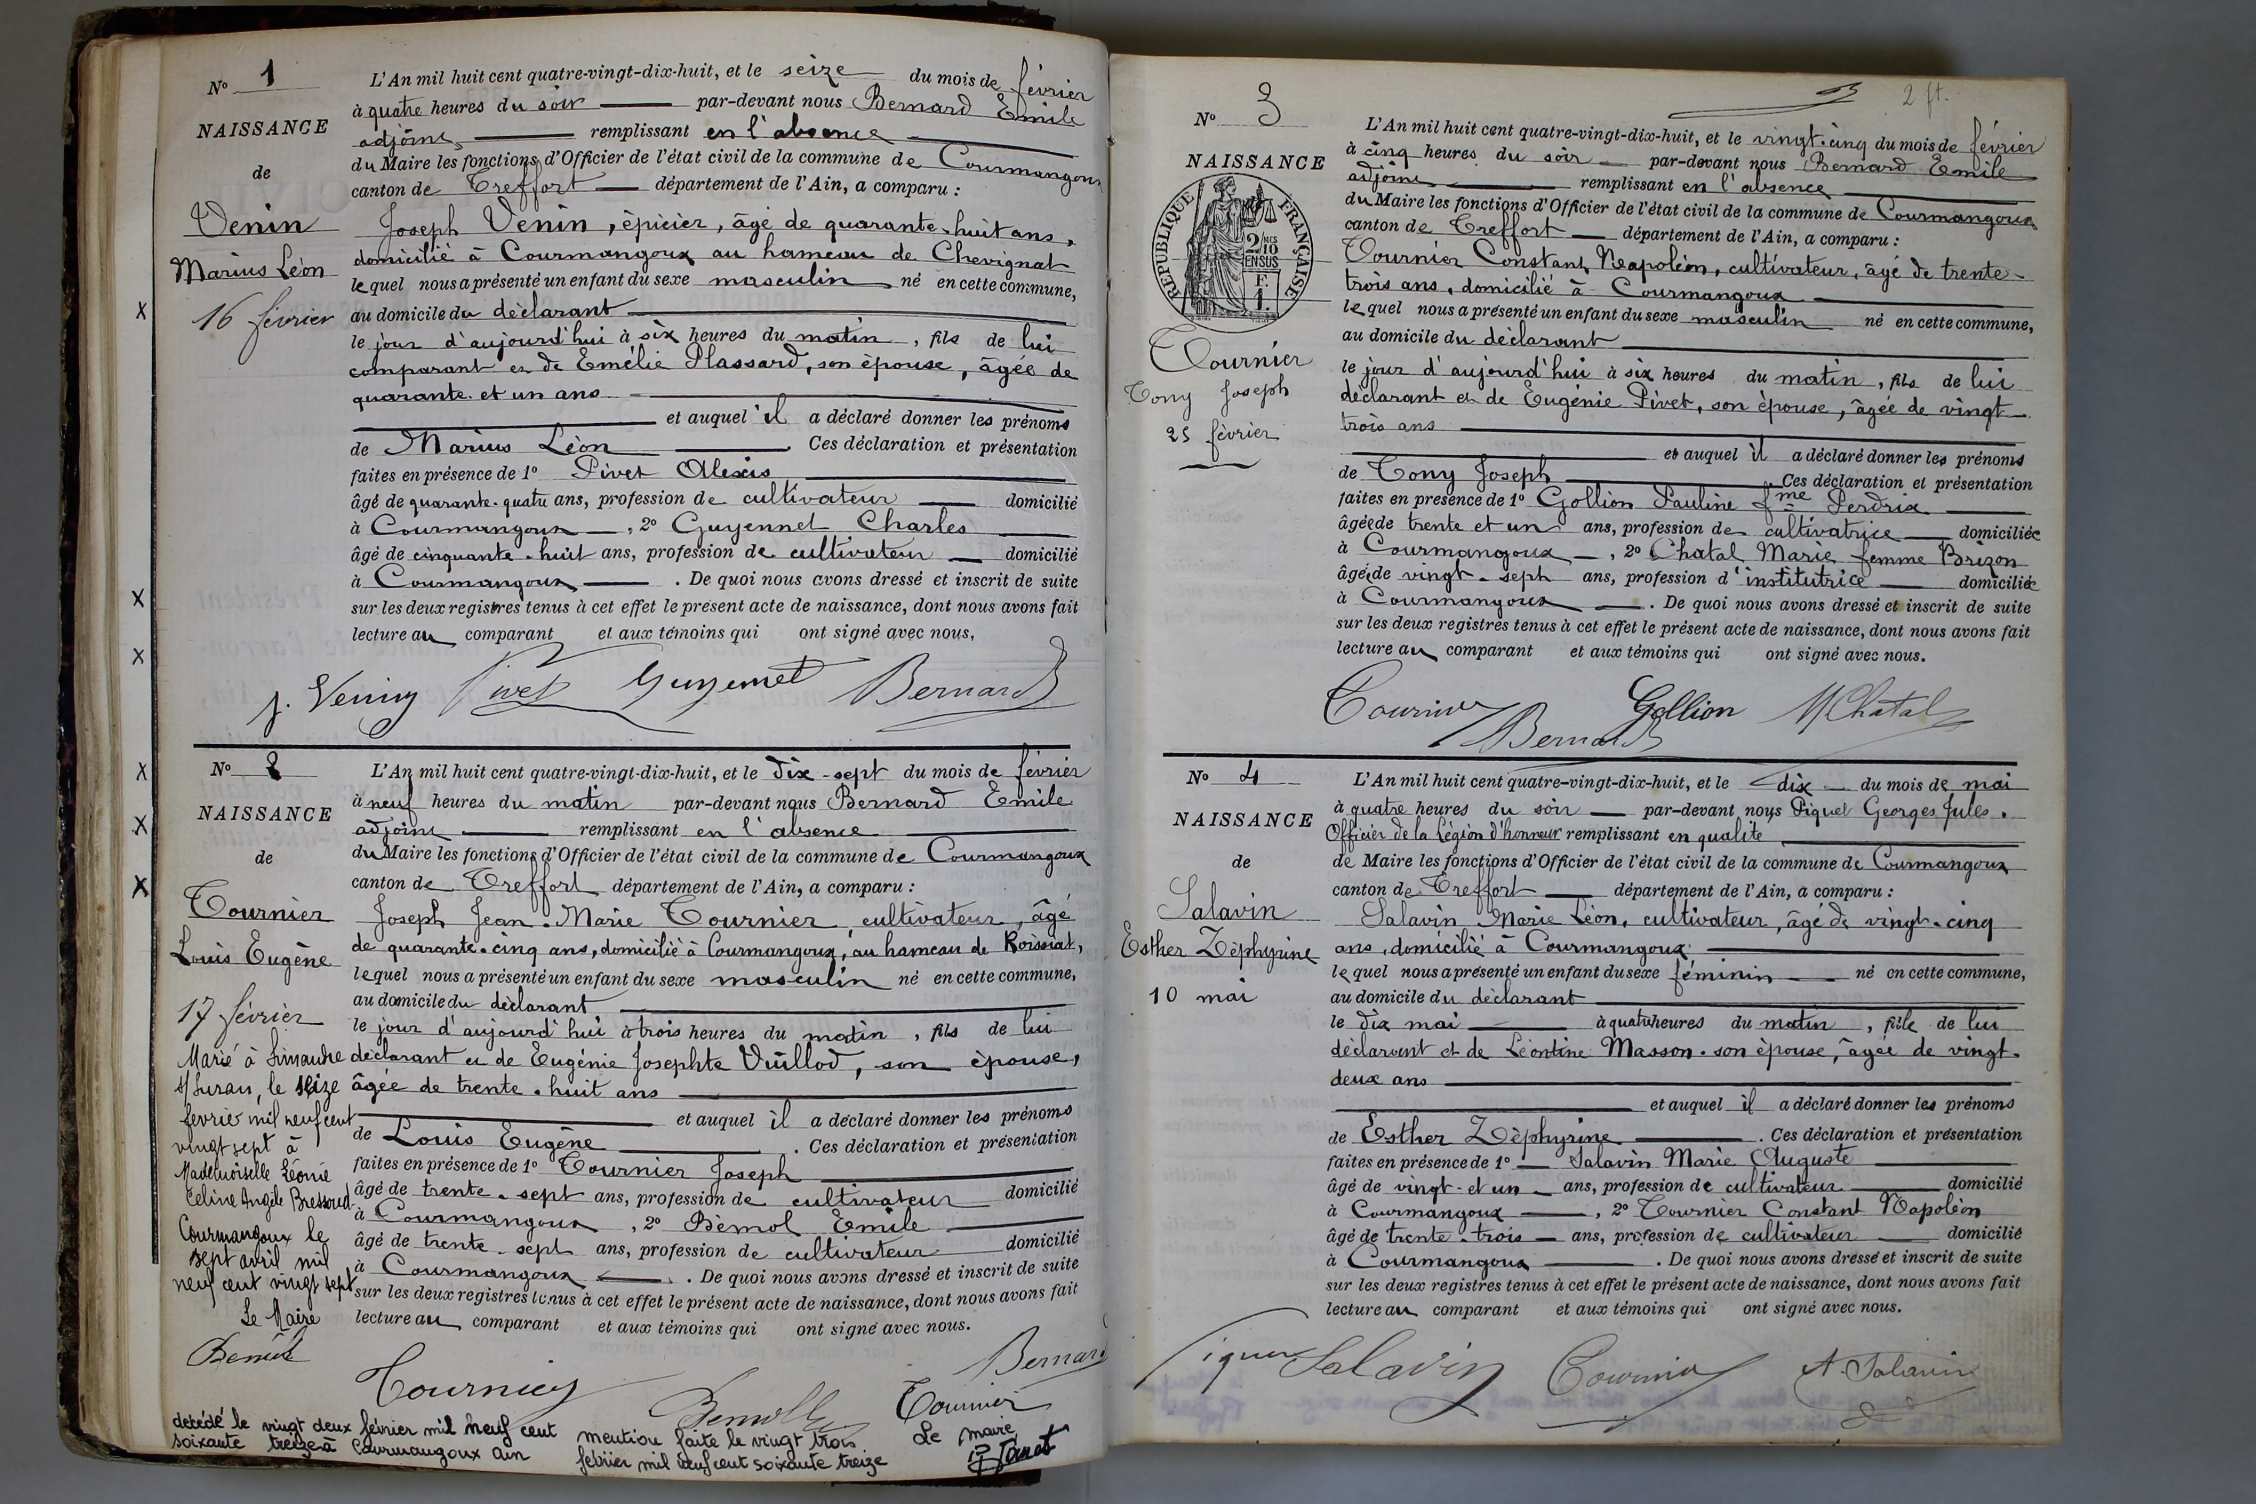 N° 1
NAISSANCE
de
Venin
Marius Léon
16 février
L'An mil huit cent quatre-vingt-dix-huit, et le seize du mois de février
à quatre heures du soir par-devant nous Bernard Emile
adjoint remplissant en l'absence
du Maire les fonctions d'Officier de l'état civil de la commune de Courmangoux
canton de Treffort département de l'Ain, a comparu :
Joseph Venin, épicier, âgé de quarante-huit ans,
domicilié à Courmangoux au hameau de Chevignat
lequel nous a présenté un enfant du sexe masculin né en cette commune,
au domicile du déclarant
le jour d'aujourd'hui à six heures du matin, fils de lui
comparant et de Emélie Plassard, son épouse, âgée de
quarante et un ans
et auquel il a déclaré donner les prénoms
de Marius Léon Ces déclaration et présentation
faites en présence de 1° Pivet Alexis
âgé de quarante-quatre ans, profession de cultivateur domicilié
à Courmangoux, 2° Guyennet Charles
âgé de cinquante-huit ans, profession de cultivateur domicilié
à Courmangoux. De quoi nous avons dressé et inscrit de suite
sur les deux registres tenus à cet effet le présent acte de naissance, dont nous avons fait
lecture au comparant et aux témoins qui ont signé avec nous,
J. Venin Pivet Guyennet Bernard
N° 2
NAISSANCE
de
Tournier
Louis Eugène
17 février
Marié à Simandre
s/ Suran, le seize
fevrier mil neuf cent
vingt sept à
Mademoiselle Léonie
Celine Angèle Bressoud
Courmangoux le
sept avril mil
neuf cent vingt sept
Le Maire
L'An mil huit cent quatre-vingt-dix-huit, et le dix-sept du mois de février
à neuf heures du matin par-devant nous Bernard Emile
adjoint remplissant en l'absence
du Maire les fonctions d'Officier de l'état civil de la commune de Courmangoux
canton de Treffort département de l'Ain, a comparu :
Joseph Jean-Marie Tournier, cultivateur, âgé
de quarante-cinq ans, domicilié à Courmangoux, au hameau de Roissiat,
lequel nous a présenté un enfant du sexe masculin né en cette commune,
au domicile du déclarant
le jour d'aujourd'hui à trois heures du matin, fils de lui
déclarant et de Eugénie Josephte Vuillod, son épouse,
âgée de trente-huit ans
et auquel il a déclaré donner les prénoms
de Louis Eugène. Ces déclaration et présentation
faites en présence de 1° Tournier Joseph
âgé de trente-sept ans, profession de cultivateur domicilié
à Courmangoux, 2° Bémol Emile
âgé de trente-sept ans, profession de cultivateur domicilié
à Courmangoux. De quoi nous avons dressé et inscrit de suite
sur les deux registres tenus à cet effet le présent acte de naissance, dont nous avons fait
lecture au comparant et aux témoins qui ont signé avec nous.
Bernard
Tournier
Tournier
décédé le vingt deux février mil neuf cent
soixante treize à Courmangoux Ain
mention faite le vingt trois
février mil neuf cent soixante treize
Le maire
2 ft.
N° 3
NAISSANCE
RÉPUBLIQUE FRANÇAISE
2/10
EN SUS
F.
1.
Tournier
Tony Joseph
25 février
L'An mil huit cent quatre-vingt-dix-huit, et le vingt-cinq du mois de février
à cinq heures du soir par-devant nous Bernard Emile
adjoint remplissant en l'absence
du Maire les fonctions d'Officier de l'état civil de la commune de Courmangoux
canton de Treffort département de l'Ain, a comparu :
Tournier Constant Napoléon, cultivateur, âgé de trente-
trois ans, domicilié à Courmangoux
lequel nous a présenté un enfant du sexe masculin né en cette commune,
au domicile du déclarant
le jour d'aujourd'hui à six heures du matin, fils de lui
déclarant et de Eugénie Pivet, son épouse, âgée de vingt
trois ans
et auquel il a déclaré donner les prénoms
de Tony Joseph. Ces déclaration et présentation
faites en présence de 1° Gollion Pauline fme Perdrix
âgée de trente et un ans, profession de cultivatrice domiciliée
à Courmangoux, 2° Chatal Marie femme Brizon
âgée de vingt-sept ans, profession d'institutrice domiciliée
à Courmangoux. De quoi nous avons dressé et inscrit de suite
sur les deux registres tenus à cet effet le présent acte de naissance, dont nous avons fait
lecture au comparant et aux témoins qui ont signé avec nous.
Tournier Gollion M Chatal
Bernard
N° 4
NAISSANCE
de
Salavin
Esther Zéphyrine
10 mai
L'An mil huit cent quatre-vingt-dix-huit, et le dix du mois de mai
à quatre heures du soir par-devant nous Piquet Georges Jules.
Officier de la Légion d'honneur remplissant en qualité
de Maire les fonctions d'Officier de l'état civil de la commune de Courmangoux
canton de Treffort département de l'Ain, a comparu :
Salavin Marie Léon, cultivateur, âgé de vingt-cinq
ans, domicilié à Courmangoux
lequel nous a présenté un enfant du sexe féminin né en cette commune,
au domicile du déclarant
le dix mai à quatre heures du matin, fille de lui
déclarant et de Léontine Masson. son épouse, âgée de vingt-
deux ans
et auquel il a déclaré donner les prénoms
de Esther Zéphyrine. Ces déclaration et présentation
faites en présence de 1° Salavin Marie Auguste
âgé de vingt-et un ans, profession de cultivateur domicilié
à Courmangoux, 2° Tournier Constant Napoléon
âgé de trente-trois ans, profession de cultivateur domicilié
à Courmangoux. De quoi nous avons dressé et inscrit de suite
sur les deux registres tenus à cet effet le présent acte de naissance, dont nous avons fait
lecture au comparant et aux témoins qui ont signé avec nous.
Salavin Tournier A. Salavin